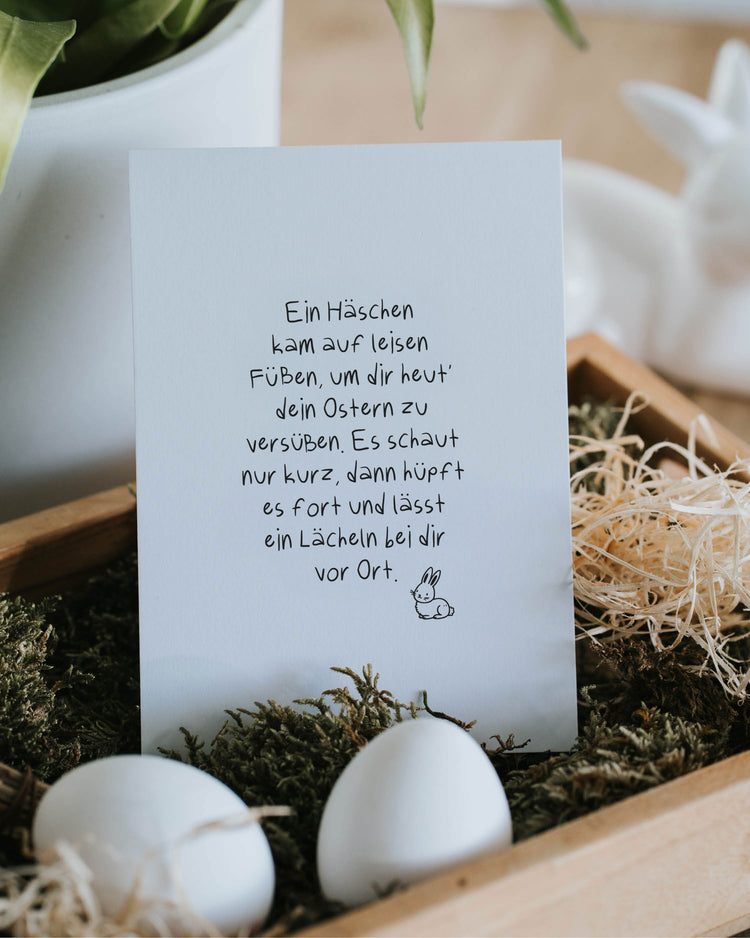 Ein Häschen
kam auf leisen
Füßen, um dir heut'
dein Ostern zu
versüßen. Es schaut
nur kurz, dann hüpft
es fort und lässt
ein Lächeln bei dir
vor Ort.